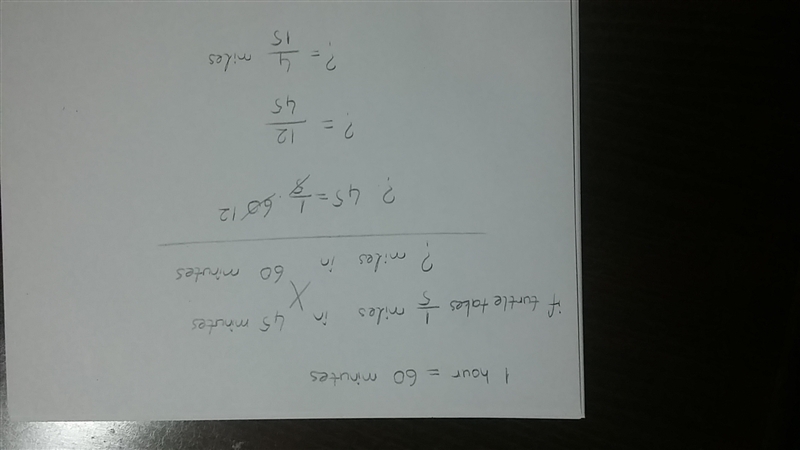 1 hour = 60 minutes
if turtle takes 1/5 miles in 45 minutes
? miles in 60 minutes
? 45 = 1/5 . 60 12
? = 12/45
? = 4/15 miles